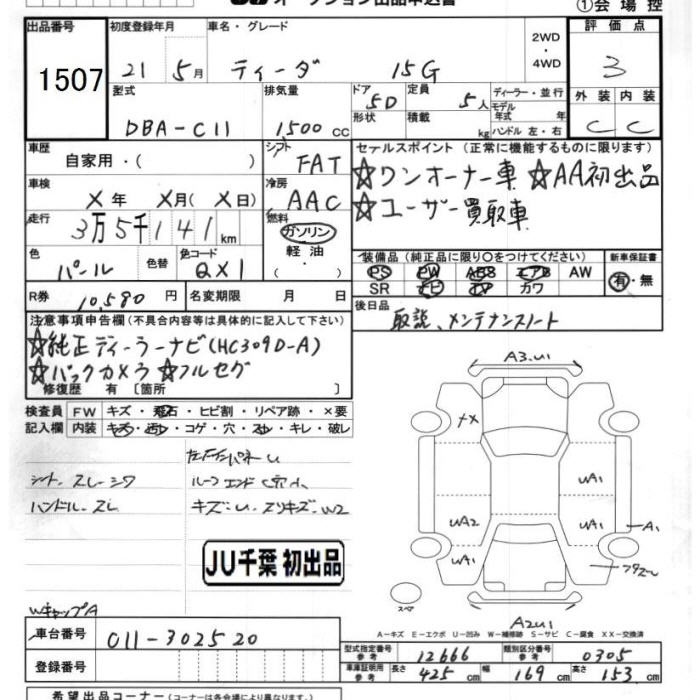 ①会場控
出品番号 初度登録年月 車名・グレード 2WD ・ 4WD 評価点
1507 21 5月 ティーダ 15G 3
型式 排気量 ドア 形状 定員 積載 ディーラー・並行 モデル年式 年式 ハンドル 左・右 外装 内装
DBA-C11 1,500 cc 5D 5人 kg C C
車歴 自家用・( ) シフト FAT セールスポイント (正常に機能するものに限ります)
☆ワンオーナー車 ☆AA初出品
車検 X年 X月(X日) 冷房 AAC
☆ユーザー買取車
走行 3万5千141km 燃料 ガソリン 軽油 ・( )
色 パール 色替 色コード QX1
装備品 (純正品に限り○をつけてください) 新車保証書
PS PW ABS エアB AW 有・無
SR ナビ TV カワ
R券 10,580円 名変期限 月 日
後日品 取説、メンテナンスノート
注意事項申告欄 (不具合内容等は具体的に記入して下さい)
☆純正ディーラーナビ(HC309D-A)
☆バックカメラ ☆フルセグ
修復歴 有 [箇所 ]
検査員 FW キズ・飛石・ヒビ割・リペア跡・×要
記入欄 内装 キズ・汚レ・コゲ・穴・スレ・キレ・破レ
シート、スレ・シワ
ハンドル・スレ ルーフエンド
JU千葉 初出品
WキャップA
A3.U1
UA1
UA2 UA1 A1
UA1
スペア
A2U1
A-キズ E-エクボ U-凹み W-補修跡 S-サビ C-腐食 XX-交換済
車台番号 011-302520
登録番号
型式指定番号 参考 12666 類別区分番号 参考 0305
車庫証明用 参考 長さ 425cm 幅 169cm 高さ 153cm
希望出品コーナー (コーナーは各会場により異なります)